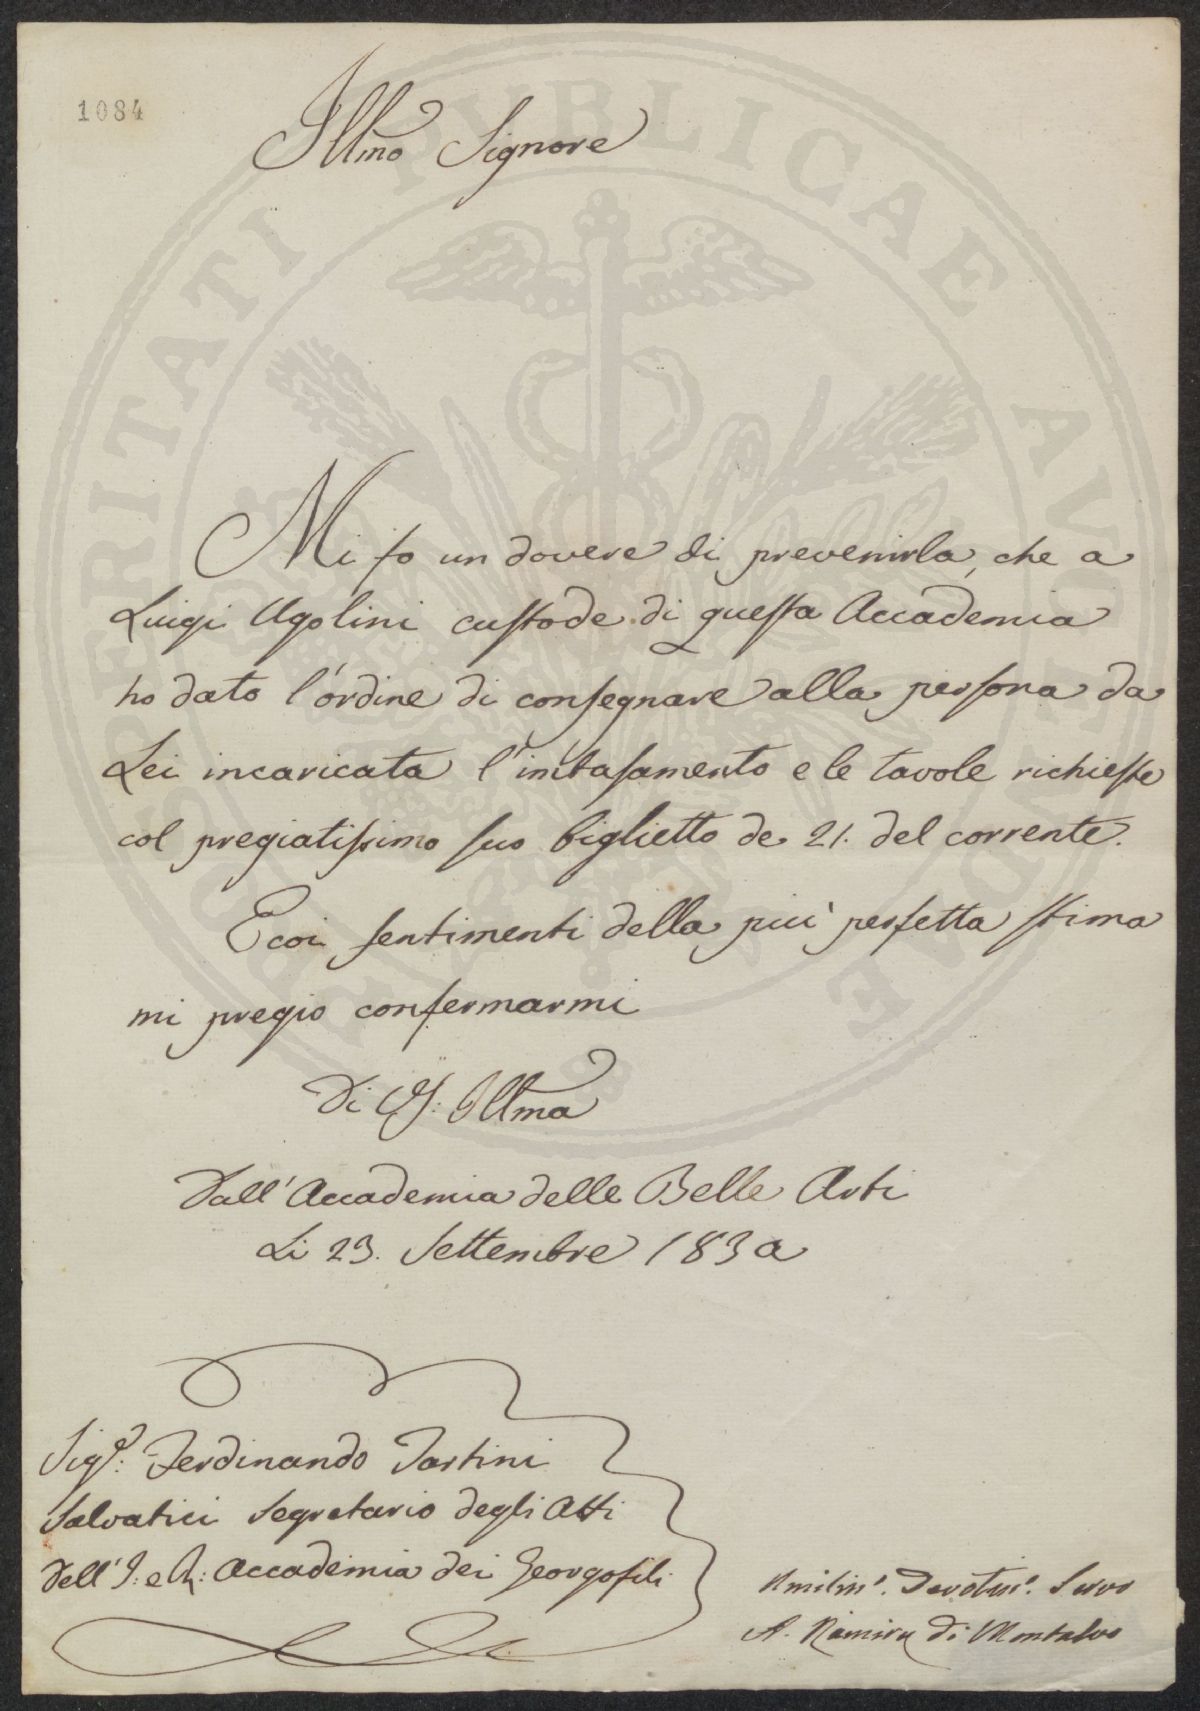 1084
Illmo Signore
Mi fo un dovere di prevenirla, che a
Luigi Ugolini custode di questa Accademia
ho dato l'ordine di consegnare alla persona da
Lei incaricata l'imbasamento e le tavole richieste
col pregiatissimo suo biglietto de 21. del corrente.
E coi sentimenti della più perfetta stima
mi pregio confermarmi
Di V.S: Illma
Dall'Accademia delle Belle Arti
Li 23. Settembre 183
Sigr: Ferdinando Tartini
Salvatici Segretario degli Atti
dell'I: e R: Accademia dei Georgofili
Umilmo. Devotmo. Servo
A. Ramirez di Montalvo
PROSPERITATI PVBLICAE AVGENDAE